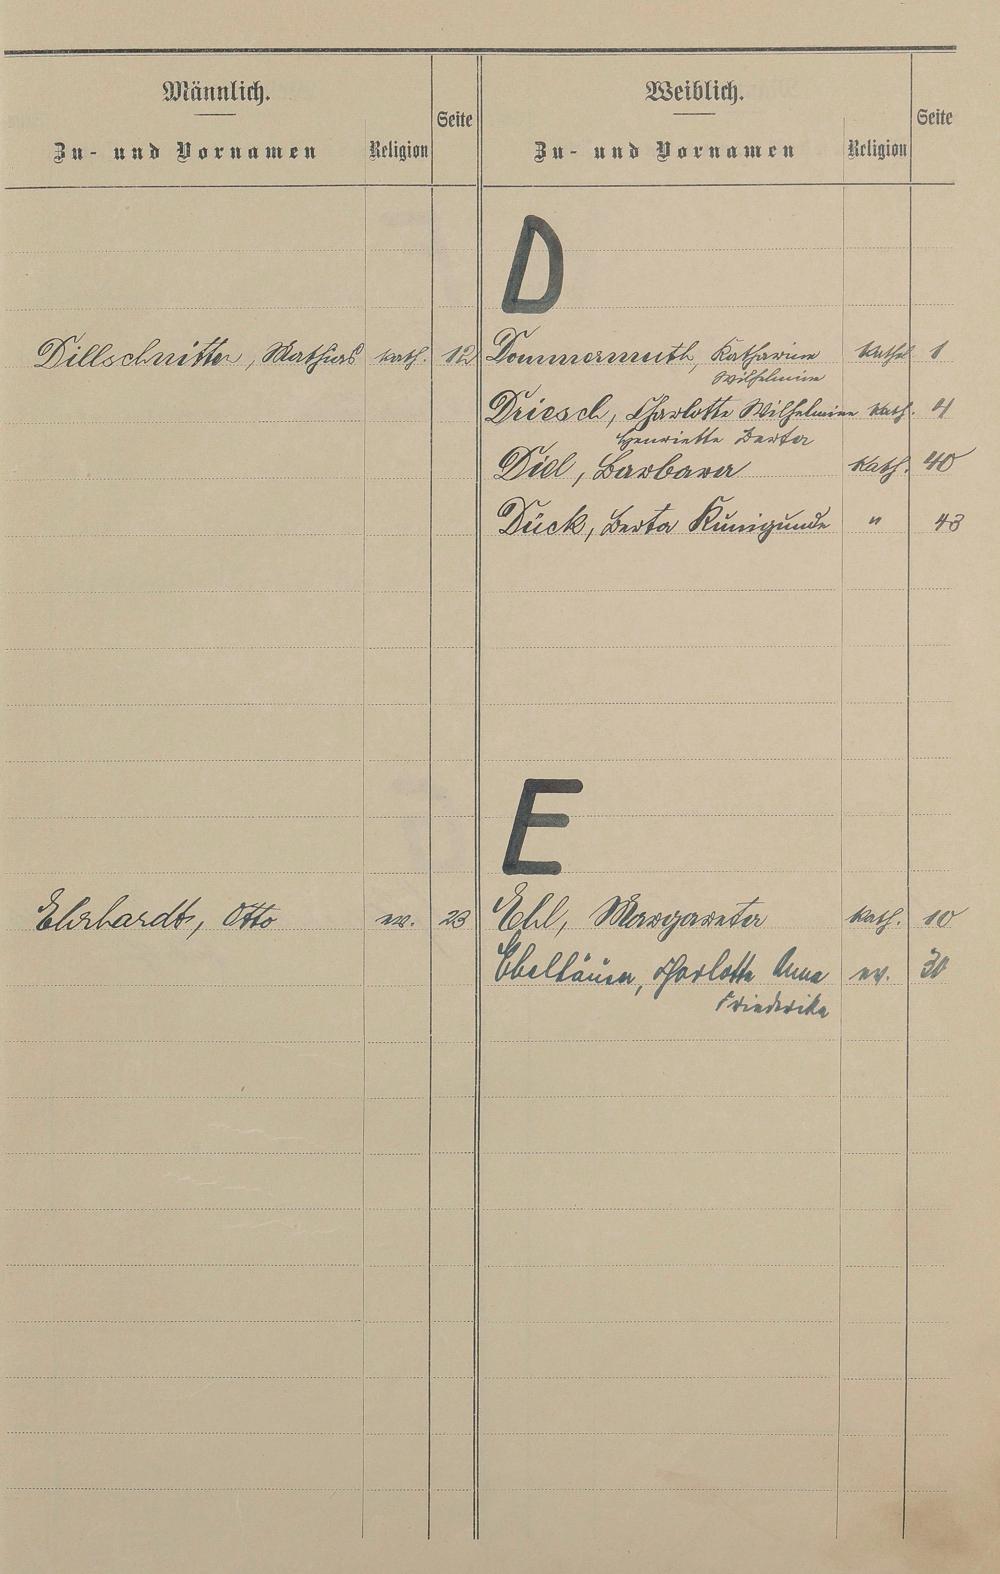 Männlich.
Zu- und Vornamen Religion Seite
Weiblich.
Zu- und Vornamen Religion Seite
D
Dillschnitter, Mathias kath. 12
Dommermuth, Katharina kathol 1
Wilhelmine
Driesch, Charlotte Wilhelmine kath. 4
Henriette Berta
Diel, Barbara kath. 40
Dück, Berta Kunigunde " 43
E
Ehrhardt, Otto ev. 23
Ehl, Margareta kath. 10
Charlotte Anna ev. 30
Friederika